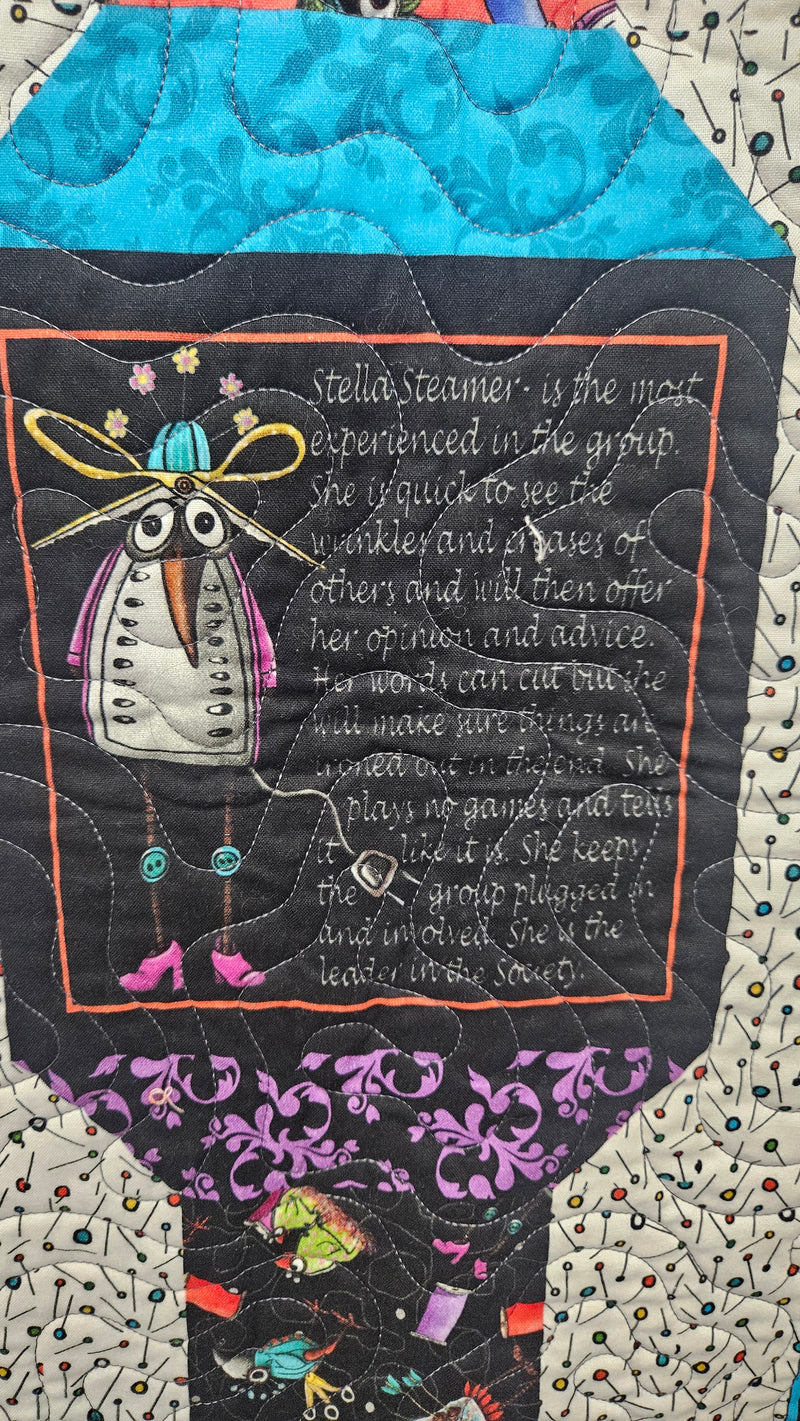 Stella Steamer - is the most
experienced in the group.
She is quick to see the
wrinkles and creases of
others and will then offer
her opinion and advice.
Her words can cut but she
will make sure things are
ironed out in the end. She
plays no games and tells
it like it is. She keeps
the group plugged in
and involved. She is the
leader in the Society.